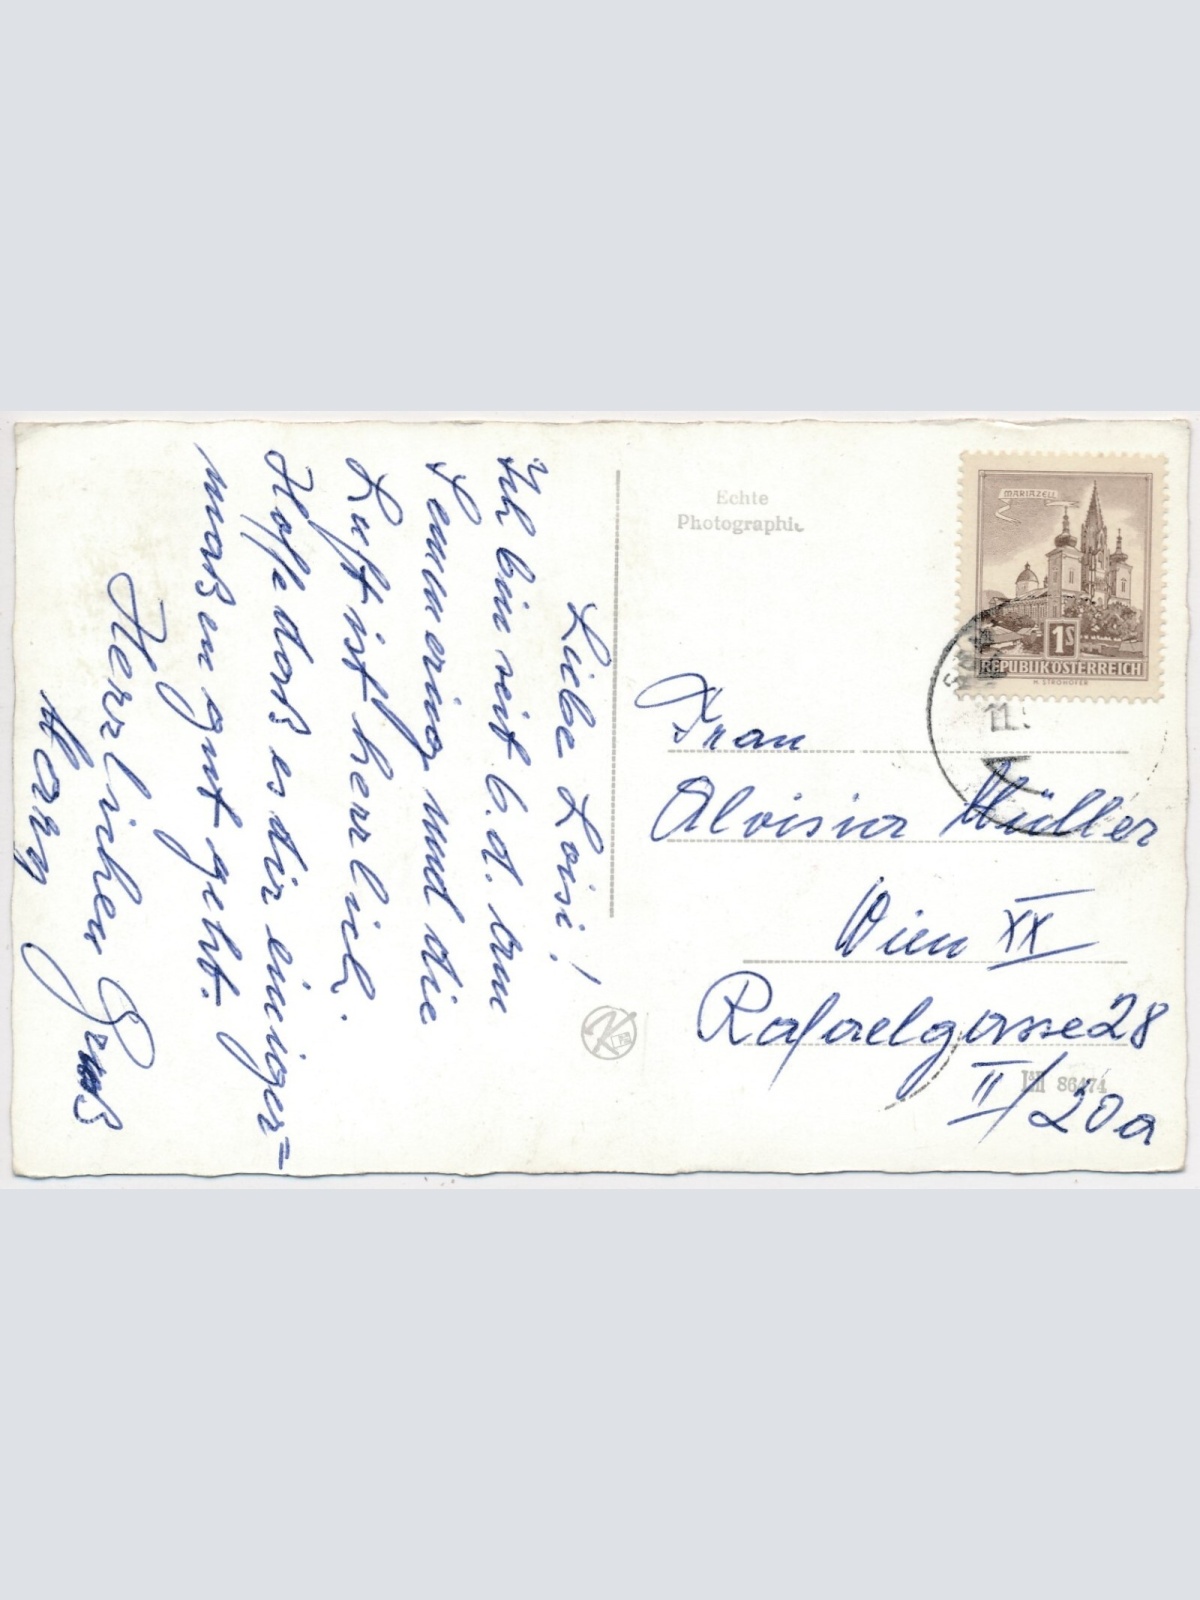 Liebe Loisi!
Ich bin seit 6. d. am
Semmering und die
Luft ist herrlich.
Hoffe dass es dir einiger=
maßen gut geht.
Herzlichen Gruß
Echte
Photographie
MARIAZELL
1S
REPUBLIK ÖSTERREICH
H. STROHOFER
11.
Frau
Aloisia Müller
Wien XX
Rafaelgasse 28
II/20a
86474
K